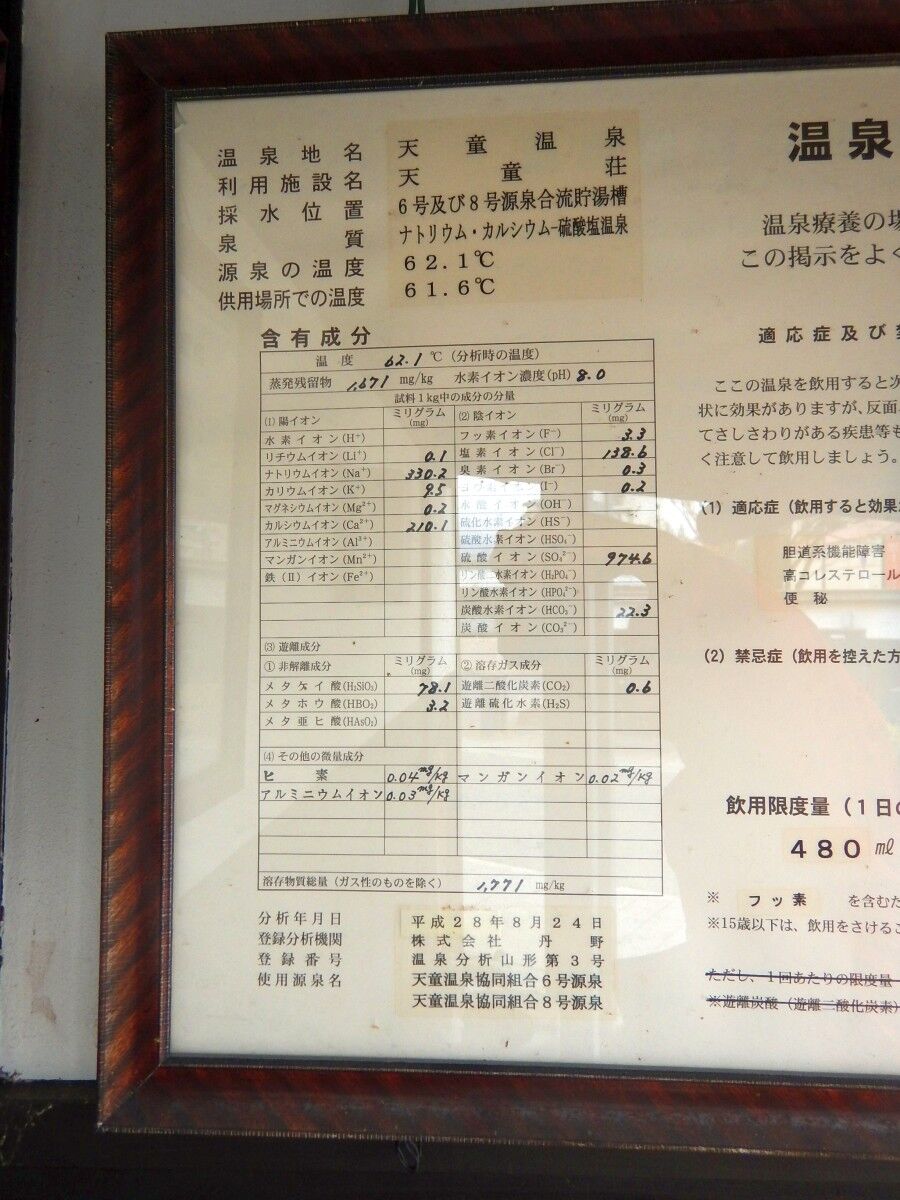 温泉地名 天童温泉
利用施設名 天童荘
採水位置 6号及び8号源泉合流貯湯槽
泉質 ナトリウム・カルシウム−硫酸塩温泉
源泉の温度 62.1℃
供用場所での温度 61.6℃
含有成分
温度 62.1 ℃ (分析時の温度)
蒸発残留物 1,671 mg/kg 水素イオン濃度(pH) 8.0
試料1kg中の成分の分量
(1) 陽イオン ミリグラム(mg) (2) 陰イオン ミリグラム(mg)
水素イオン(H⁺) フッ素イオン(F⁻) 3.3
リチウムイオン(Li⁺) 0.1 塩素イオン(Cl⁻) 138.6
ナトリウムイオン(Na⁺) 330.2 臭素イオン(Br⁻) 0.3
カリウムイオン(K⁺) 9.5 ヨウ素イオン(I⁻) 0.2
マグネシウムイオン(Mg²⁺) 0.2 水酸イオン(OH⁻)
カルシウムイオン(Ca²⁺) 210.1 硫化水素イオン(HS⁻)
アルミニウムイオン(Al³⁺) 硫酸水素イオン(HSO₄⁻)
マンガンイオン(Mn²⁺) 硫酸イオン(SO₄²⁻) 974.6
鉄(II)イオン(Fe²⁺) リン酸二水素イオン(H₂PO₄⁻)
リン酸水素イオン(HPO₄²⁻)
炭酸水素イオン(HCO₃⁻) 22.3
炭酸イオン(CO₃²⁻)
(3) 遊離成分
① 非解離成分 ミリグラム(mg) ② 溶存ガス成分 ミリグラム(mg)
メタケイ酸(H₂SiO₃) 78.1 遊離二酸化炭素(CO₂) 0.6
メタホウ酸(HBO₂) 3.2 遊離硫化水素(H₂S)
メタ亜ヒ酸(HAsO₂)
(4) その他の微量成分
ヒ素 0.04mg/kg マンガンイオン 0.02mg/kg
アルミニウムイオン 0.03mg/kg
溶存物質総量(ガス性のものを除く) 1,771 mg/kg
分析年月日 平成28年8月24日
登録分析機関 株式会社 丹野
登録番号 温泉分析山形第3号
使用源泉名 天童温泉協同組合6号源泉
天童温泉協同組合8号源泉
温泉
温泉療養の
この掲示をよく
適応症及び
ここの温泉を飲用すると次
状に効果がありますが、反面、
てさしさわりがある疾患等も
く注意して飲用しましょう。
(1) 適応症(飲用すると効果
胆道系機能障害
高コレステロール
便秘
(2) 禁忌症(飲用を控えた方
飲用限度量(1日の
480 ml
※ フッ素 を含むた
※15歳以下は、飲用をさけるこ
ただし、1回あたりの限度量
※遊離炭酸(遊離二酸化炭素)